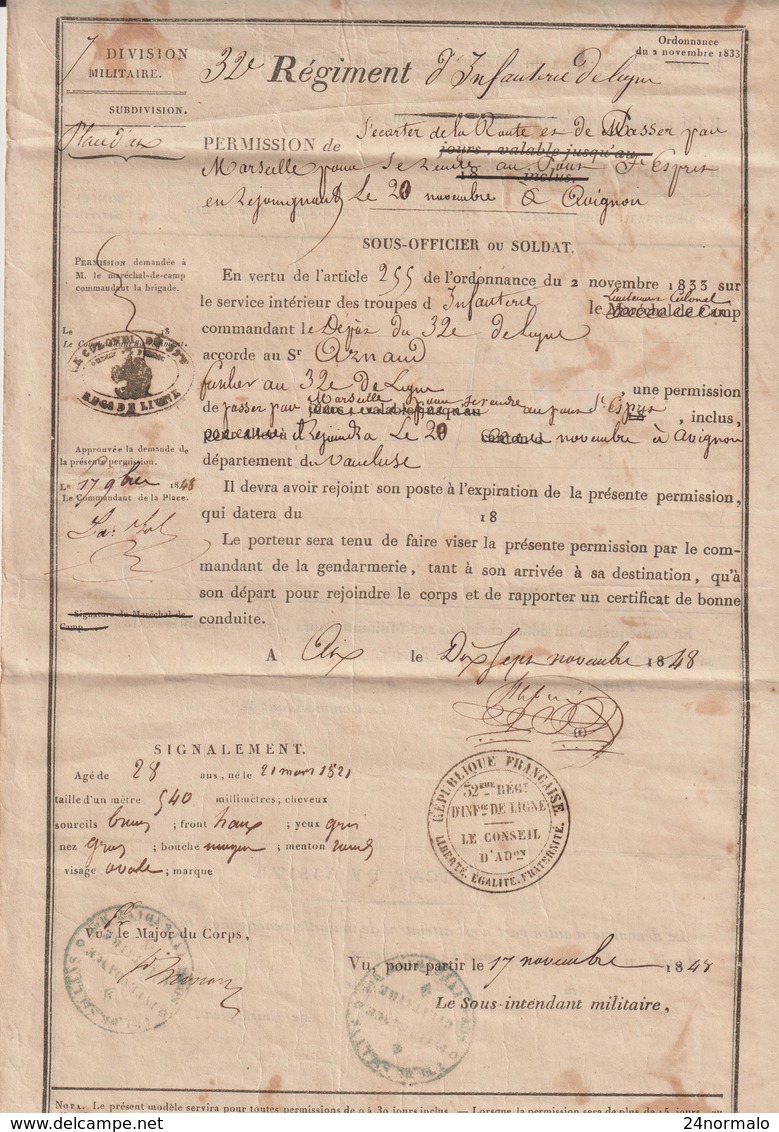 Ordonnance
du 2 novembre 1833
7 DIVISION
MILITAIRE.
32e Régiment d'Infanterie de ligne
SUBDIVISION.
Place d'aix
PERMISSION de s'écarter de la Route et de Passer par
jours, valable jusqu'au
Marseille pour se rendre au Pont St Esprit
18 inclus.
en rejoignant Le 20 novembre à Avignon
SOUS-OFFICIER OU SOLDAT.
PERMISSION demandée à
M. le maréchal-de-camp
commandant la brigade.
Le 18
En vertu de l'article 255 de l'ordonnance du 2 novembre 1833 sur
le service intérieur des troupes d Infanterie le Lieutenant Colonel
Maréchal de Camp
commandant le Dépôt du 32e de Ligne
accorde au Sr Arnaud
fusilier au 32e de Ligne , une permission
de passer par Marseille pour se rendre au pont St Esprit , inclus,
jours, valable jusqu'au
rejoindra Le 20 novembre à Avignon
département du Vaucluse
Approuvée la demande de
la présente permission.
Le 17 9bre 1848
Le Commandant de la Place.
Il devra avoir rejoint son poste à l'expiration de la présente permission,
qui datera du 18
Le porteur sera tenu de faire viser la présente permission par le com-
mandant de la gendarmerie, tant à son arrivée à sa destination, qu'à
son départ pour rejoindre le corps et de rapporter un certificat de bonne
conduite.
Signature du Maréchal de
Camp.
A Aix le Dix Sept novembre 1848
(1)
SIGNALEMENT.
Agé de 28 ans, né le 21 mars 1821
taille d'un mètre 540 millimètres; cheveux
sourcils bruns ; front haut ; yeux gris
nez gros ; bouche moyen ; menton rond
visage ovale ; marque
RÉPUBLIQUE FRANÇAISE.
32EME RÉGt
D'INFrie DE LIGNE
LE CONSEIL
D'ADon
LIBERTÉ, ÉGALITÉ, FRATERNITÉ.
Vu le Major du Corps,
Vu, pour partir le 17 novembre 1848
Le Sous-intendant militaire,
NOTA. Le présent modèle servira pour toutes permissions de 0 à 30 jours inclus. — Lorsque la permission sera de plus de 15 jours, au
www.delcampe.net
24normalo